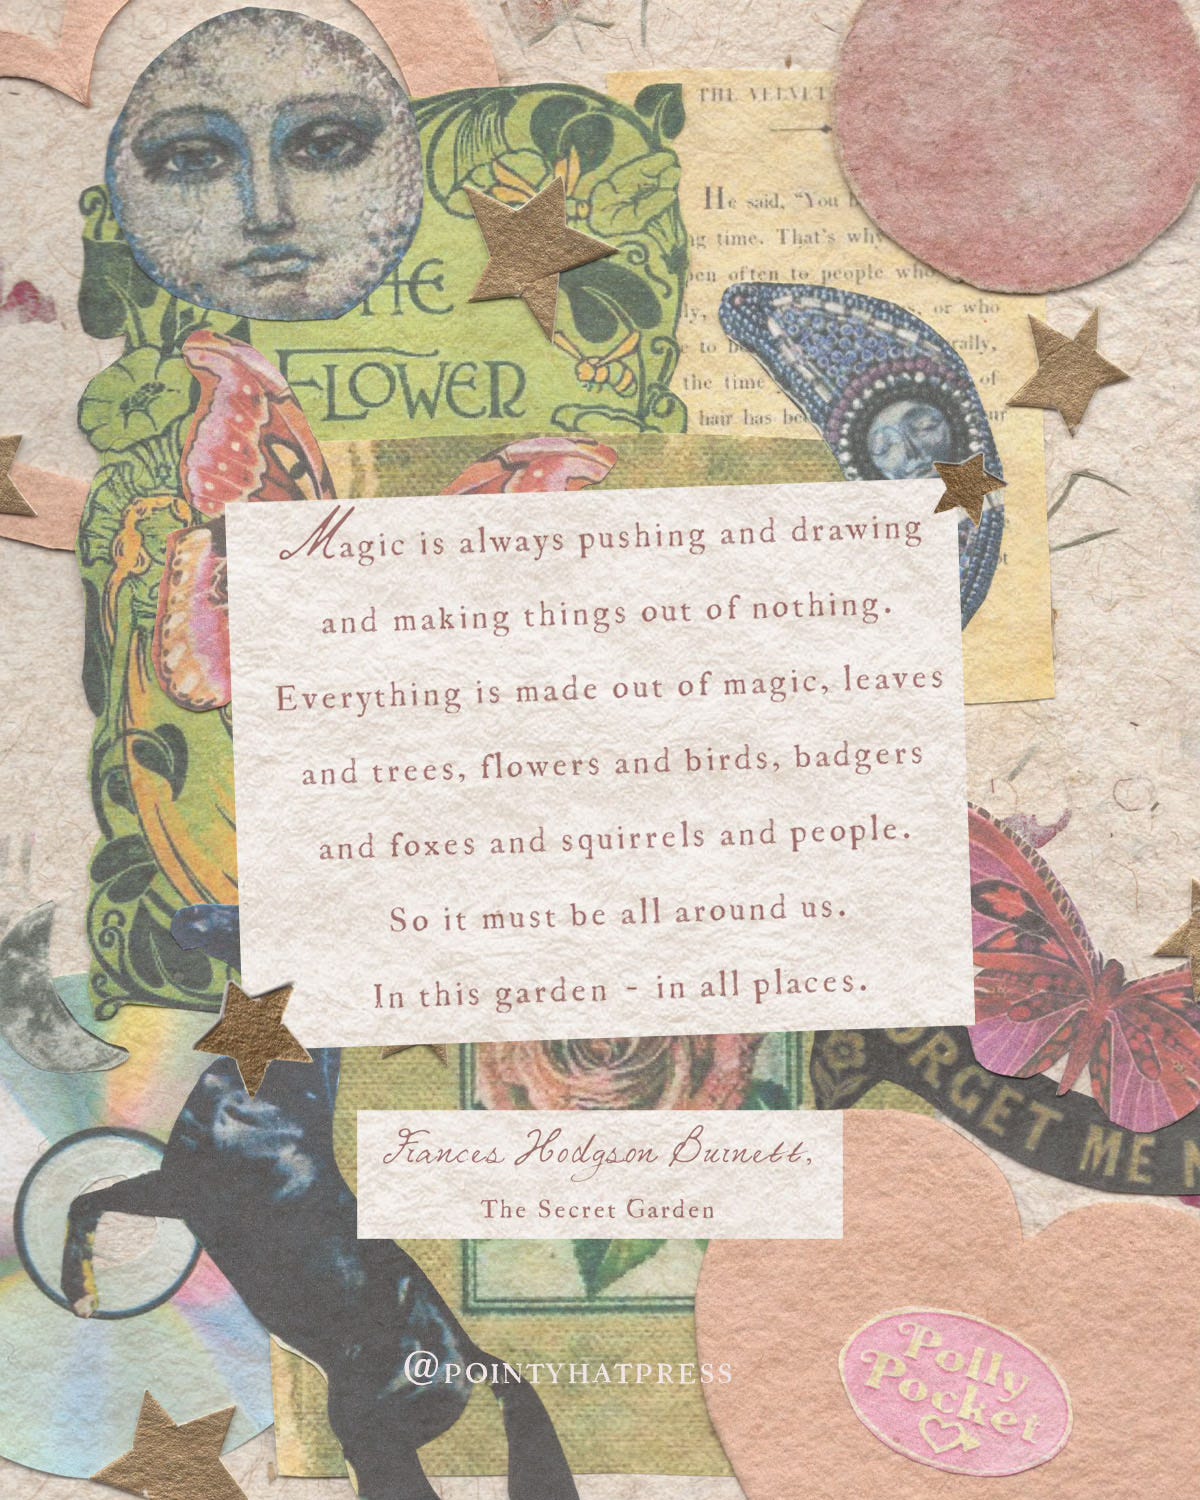 THE VELVET
He said, "You
ng time. That's why
often to people who
or who
to
rally,
the time
of
hair has
THE
FLOWER
Magic is always pushing and drawing
and making things out of nothing.
Everything is made out of magic, leaves
and trees, flowers and birds, badgers
and foxes and squirrels and people.
So it must be all around us.
In this garden - in all places.
ORGET ME N
Frances Hodgson Burnett,
The Secret Garden
Polly
Pocket
@POINTYHATPRESS